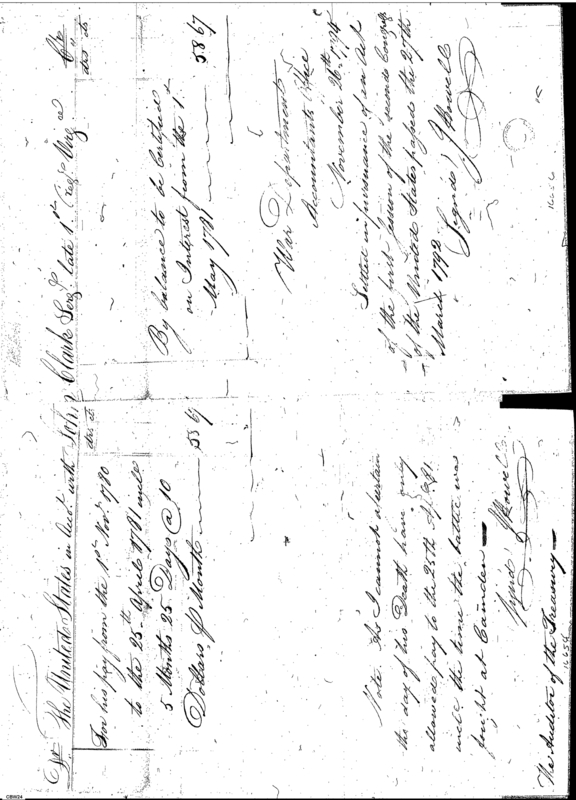 Dr The United States in acct with John Clark Sergt. late 1st Regt. Virg a Cr
drs cts
For his pay from the 1st Novr. 1780
to the 25th of April 1781 inde
5 Months 25 Days @ 10
Dollars P Month 5867
Note. As I cannot ascertain
the day of his Death have only
allowed pay to the 25th April 81.
until the time the battle was
fought at Camden
Signd J Howell
The Auditor of the Treasury
16654
drs cts
By balance to be Certified
on Interest from the 1st
May 1781 5867
War Department
Accountants Office
November 26th 1794
Settled in pursuance of an Act
of the first session of the second Congress
of the United States passed the 27th
March 1792
Signed J Howell
16656
CBW24